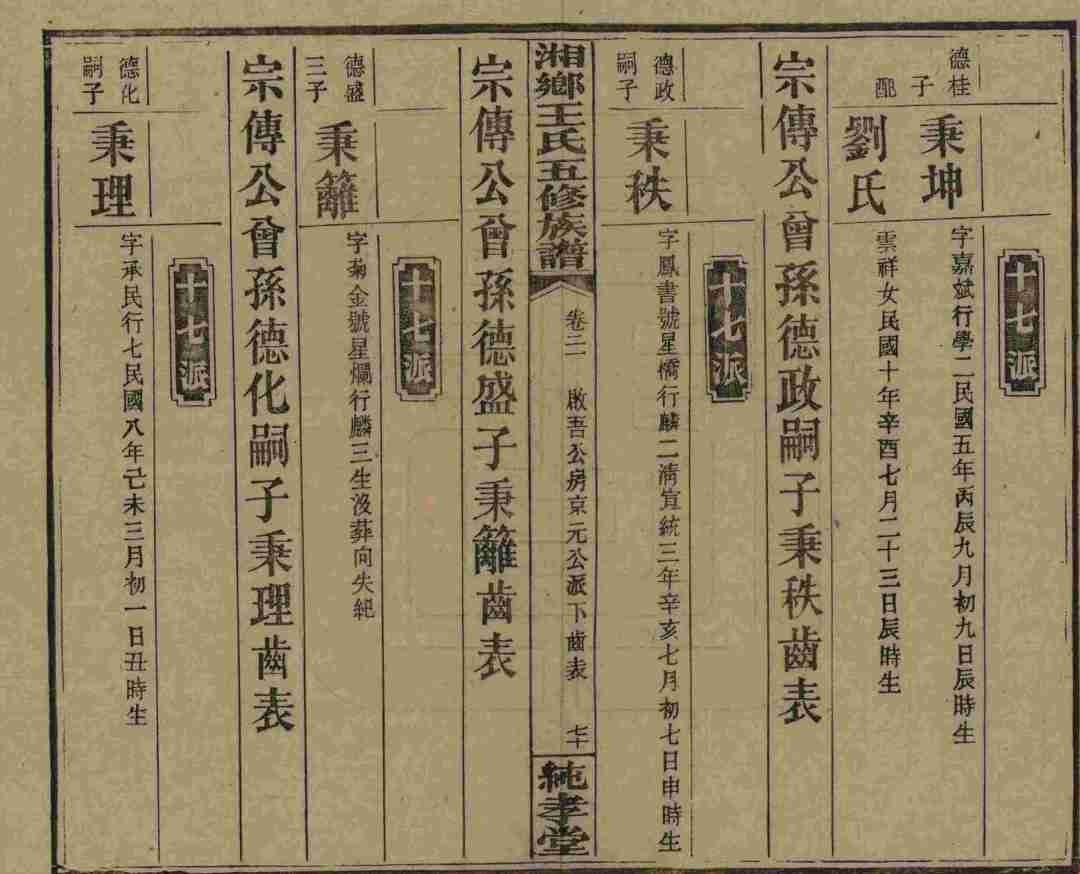 十七派
德桂子
秉坤
字嘉斌行學二民國五年丙辰九月初九日辰時生
配
劉氏
雲祥女民國十年辛酉七月二十三日辰時生
宗傳公曾孫德政嗣子秉秩齒表
十七派
德政嗣子
秉秩
字鳳書號星橋行麟二清宣統三年辛亥七月初七日申時生
湘鄉王氏五修族譜
卷三
啟吾公房京元公派下齒表
七十
純孝堂
宗傳公曾孫德盛子秉籬齒表
十七派
德盛三子
秉籬
字菊金號星爛行麟三生沒葬向失紀
宗傳公曾孫德化嗣子秉理齒表
十七派
德化嗣子
秉理
字承民行七民國八年己未三月初一日丑時生